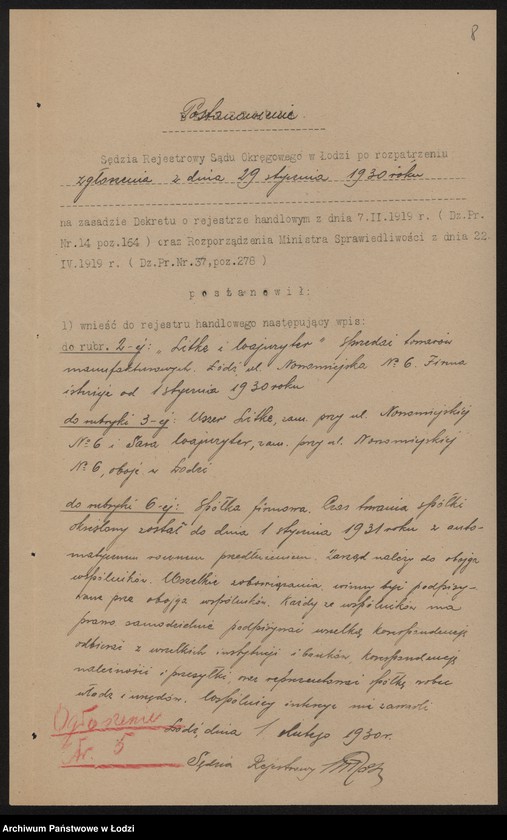 8
Postanowienie
Sędzia Rejestrowy Sądu Okręgowego w Łodzi po rozpatrzeniu
zgłoszenia z dnia 29 stycznia 1930 roku
na zasadzie Dekretu o rejestrze handlowym z dnia 7.II.1919 r. ( Dz.Pr.
Nr.14 poz.164 ) oraz Rozporządzenia Ministra Sprawiedliwości z dnia 22
IV.1919 r. ( Dz.Pr.Nr.37,poz.278 )
postanowił:
1) wnieść do rejestru handlowego następujący wpis:
do rubr. 2-ej: "Litke i Wajuryter" Sprzedaż towarów
manufakturowych. Łódź ul. Nowomiejska № 6. Firma
istnieje od 1 stycznia 1930 roku
do rubryki 3-ej: Uszer Litke, zam. przy ul. Nowomiejskiej
№ 6 i Sara Wajuryter, zam. przy ul. Nowomiejskiej
№ 6, oboje w Łodzi
do rubryki 6-ej: Spółka firmowa. Czas trwania spółki
określony został do dnia 1 stycznia 1931 roku z auto-
matycznem rocznem przedłużeniem. Zarząd należy do obojga
wspólników. Wszelkie zobowiązania winny być podpisy-
wane przez obojga wspólników. Każdy ze wspólników ma
prawo samodzielnie podpisywać wszelką korespondencję
odbierać z wszelkich instytucji i banków, korespondencję
należności i przesyłki, oraz reprezentować spółkę wobec
władz i urzędów. Wspólnicy intercyz nie zawarli
Ogłoszenie
Nr. 5
Łódź dnia 1 lutego 1930 r.
Sędzia Rejestrowy
Archiwum Państwowe w Łodzi